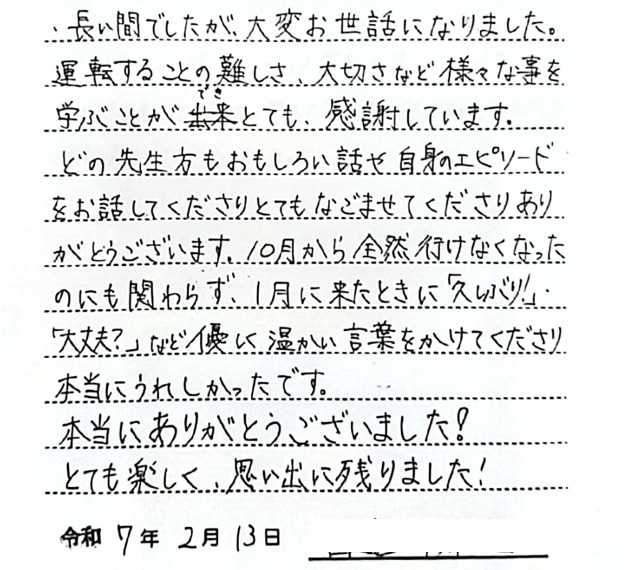 、長い間でしたが、大変お世話になりました。
運転することの難しさ、大切さなど様々な事を
学ぶことができとても、感謝しています。
どの先生方もおもしろい話や自身のエピソード
をお話してくださりとてもなごませてくださりあり
がとうございます。10月から全然行けなくなった
のにも関わらず、1月に来たときに「久しぶり!」・
「大丈夫?」など優しく温かい言葉をかけてくださり
本当にうれしかったです。
本当にありがとうございました!
とても楽しく、思い出に残りました!
令和7年2月13日